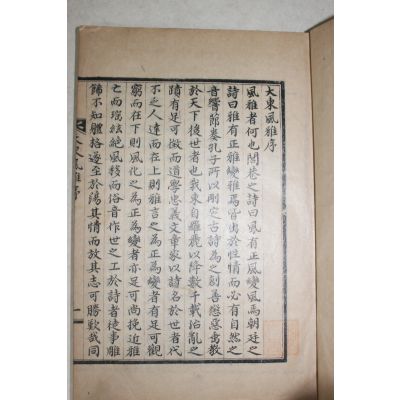 大東風雅序
風雅者何也閭巷之詩曰風有正風變風焉朝廷之
詩曰雅有正雅變雅焉皆出於性情而必有自然之
音響節奏孔子所以刪定古詩爲之創善懲惡垂教
於天下後世者也我東自羅麗以降數千載治亂之
蹟有足可徵而道學忠義文章家以詩名於世者代
不乏人達而在上則雅言之為正為變者有足可觀
窮而在下則風化之為正為變者亦足可尚挽近雅
亡而瑞絃絶風殘而俗音作世之工於詩者徒事雕
餙不知體格遂至於蕩其情而放其志可勝歎哉同
大東風雅序
一